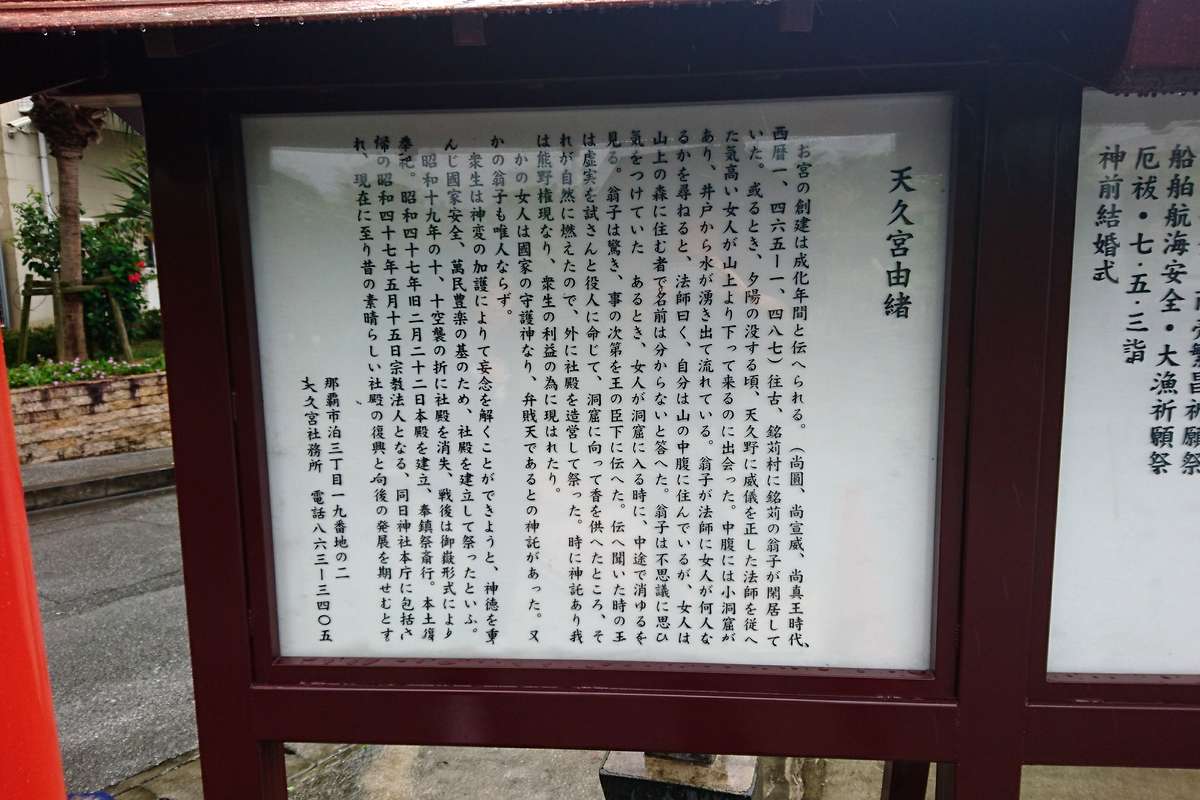 船舶航海安全・大漁祈願祭
厄祓・七・五・三詣
神前結婚式
天久宮由緒
お宮の創建は成化年間と伝へられる。（尚圓、尚宣威、尚真王時代、
西暦一、四六五ー一、四八七）往古、銘苅村に銘苅の翁子が閑居して
いた。或るとき、夕陽の没する頃、天久野に威儀を正した法師を従へ
た気高い女人が山上より下って来るのに出会った。中腹には小洞窟が
あり、井戸から水が湧き出て流れている。翁子が法師に女人が何人な
るかを尋ねると、法師曰く、自分は山の中腹に住んでいるが、女人は
山上の森に住む者で名前は分からないと答へた。翁子は不思議に思ひ
気をつけていた　あるとき、女人が洞窟に入る時に、中途で消ゆるを
見る。翁子は驚き、事の次第を王の臣下に伝へた。伝へ聞いた時の王
は虚実を試さんと役人に命じて、洞窟に向って香を供へたところ、そ
れが自然に燃えたので、外に社殿を造営して祭った。時に神託あり我
は熊野権現なり、衆生の利益の為に現はれたり。
かの女人は國家の守護神なり、弁戝天であるとの神託があった。又
かの翁子も唯人ならず。
衆生は神変の加護によりて妄念を解くことができようと、神徳を重
んじ國家安全、萬民豊楽の基のため、社殿を建立して祭ったといふ。
昭和十九年の十、十空襲の折に社殿を消失、戦後は御嶽形式により
奉祀。昭和四十七年旧二月二十二日本殿を建立、奉鎮祭斎行。本土復
帰の昭和四十七年五月十五日宗教法人となる、同日神社本庁に包括さ
れ、現在に至り昔の素晴らしい社殿の復興と向後の発展を期せむとす
那覇市泊三丁目一九番地の二
天久宮社務所　電話八六三ー三四〇五